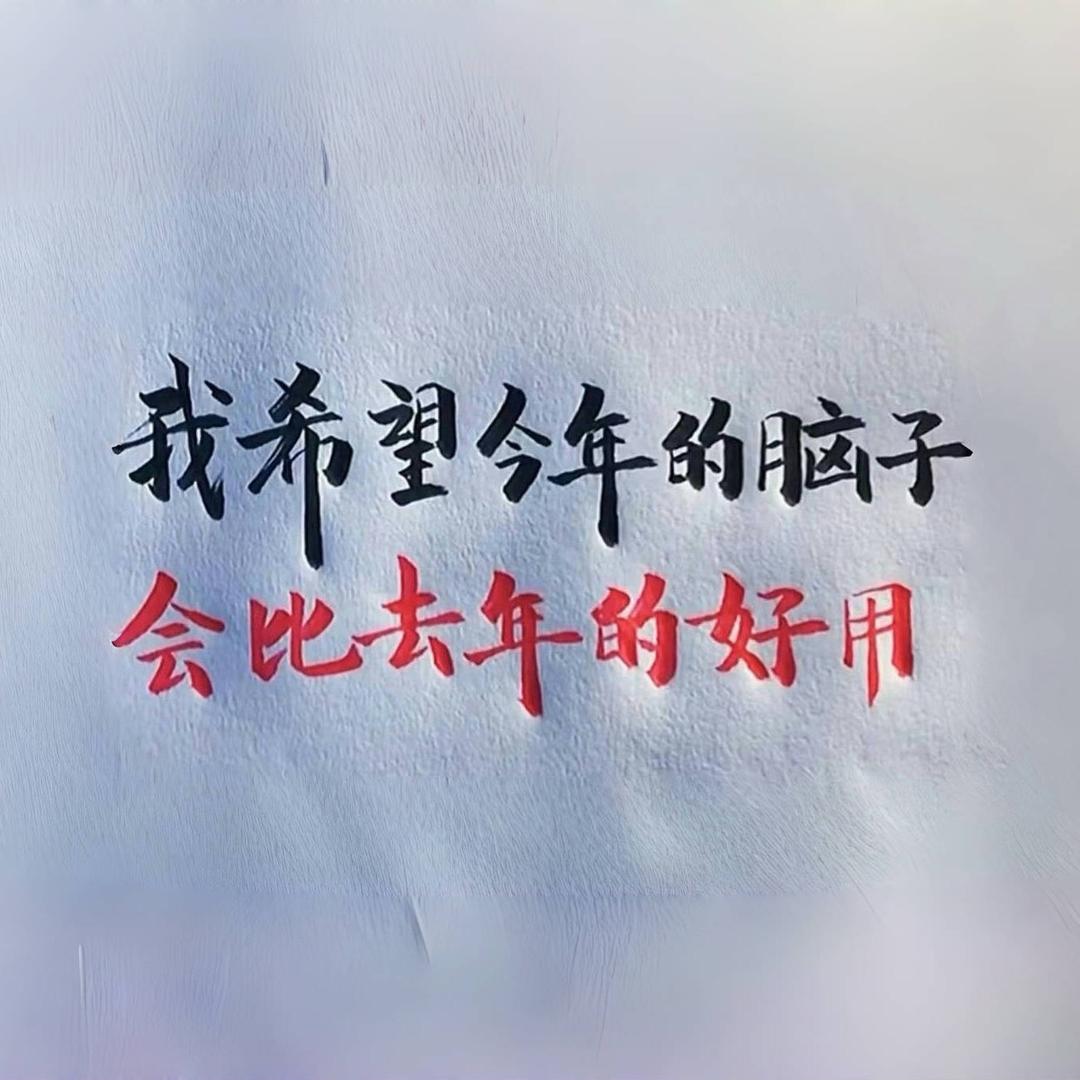 我希望今年的脑子
会比去年的好用